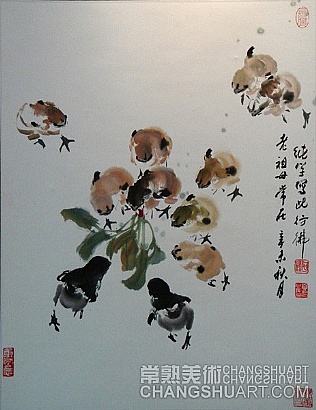 純寫此彷彿
老祖母常在 辛未秋月
常熟美術 CHANGSHUART
CHANGSHUART.COM